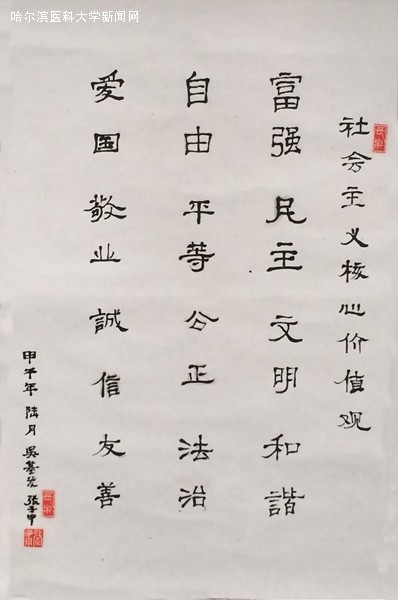 哈尔滨医科大学新闻网
社会主义核心价值观
富强 民主 文明 和諧
自由 平等 公正 法治
爱国 敬业 誠信 友善
甲午年 陆月 吴